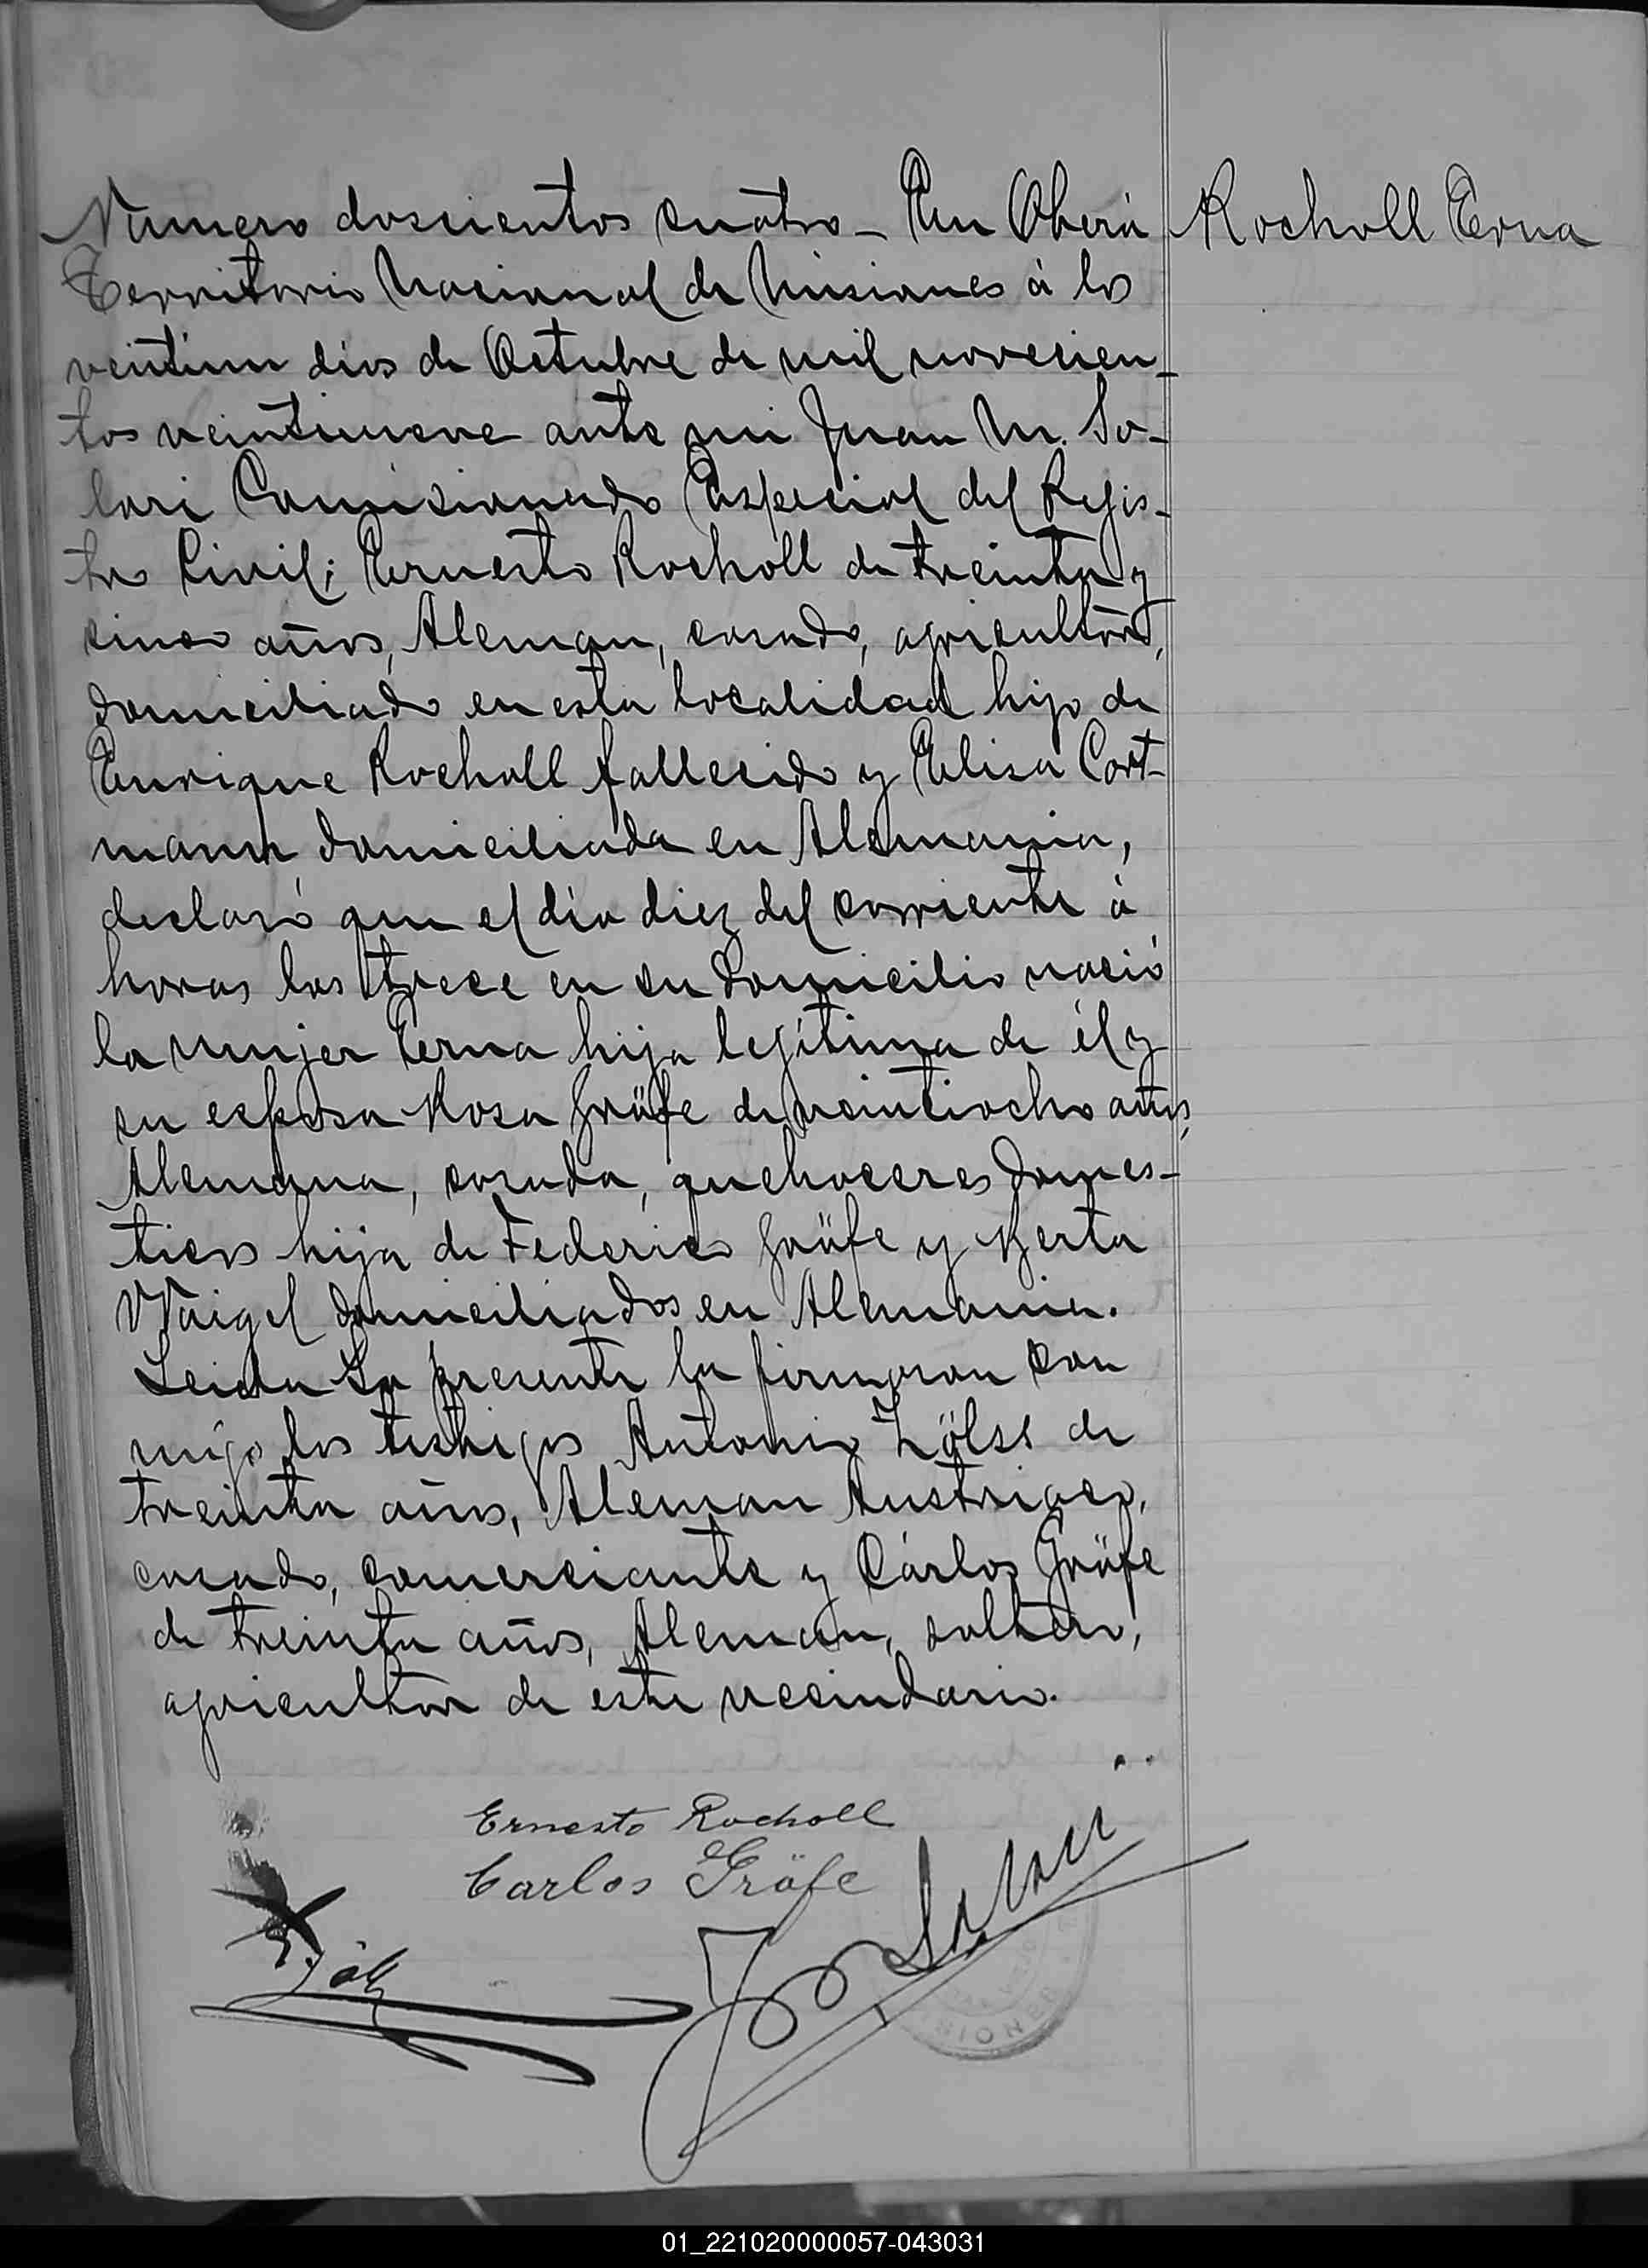 Numero doscientos cuatro – En Oberá
Rocholl Erna
Territorio Nacional de Misiones á los
ventiun dias de Octubre de mil novecien-
tos veintinueve ante mi Juan M. So-
lari Comisionado Especial del Regis-
tro Civil; Ernesto Rocholl de treinta y
cinco años, Aleman, casado, agricultor,
domiciliado en esta localidad hijo de
Enrique Rocholl fallecido y Elisa Cort-
mann domiciliada en Alemania,
declaró que el día diez del corriente á
horas las trece en su domicilio nació
la mujer Erna hija legítima de él y
su esposa Rosa Gräfe de veintiocho años,
Alemana, casada, quehaceres domes-
ticos hija de Federico Gräfe y Berta
Waigel domiciliados en Alemania.
Leida la presente la firmaron con
migo los testigos Antonio de
treinta años, Aleman Austriaco,
casado, comerciante y Cárlos Gräfe
de treinta años, Aleman, soltero,
agricultor de este vecindario.
Ernesto Rocholl
Carlos Gräfe
Solari
01_221020000057-043031